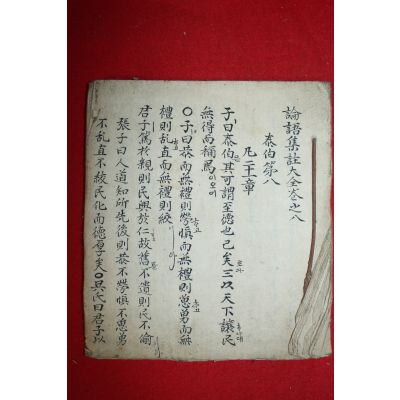 論語集註大全卷之八
泰伯第八
凡二十一章
子曰泰伯其可謂至德也已矣三以天下讓民
無得而稱焉
〇子曰恭而無禮則勞愼而無禮則葸勇而無
禮則乱直而無禮則絞
君子篤於親則民興於仁故舊不遺則民不偷
張子曰人道知所先後則恭不勞愼不葸勇
不乱直不絞民化而德厚矣〇吳氏曰君子以